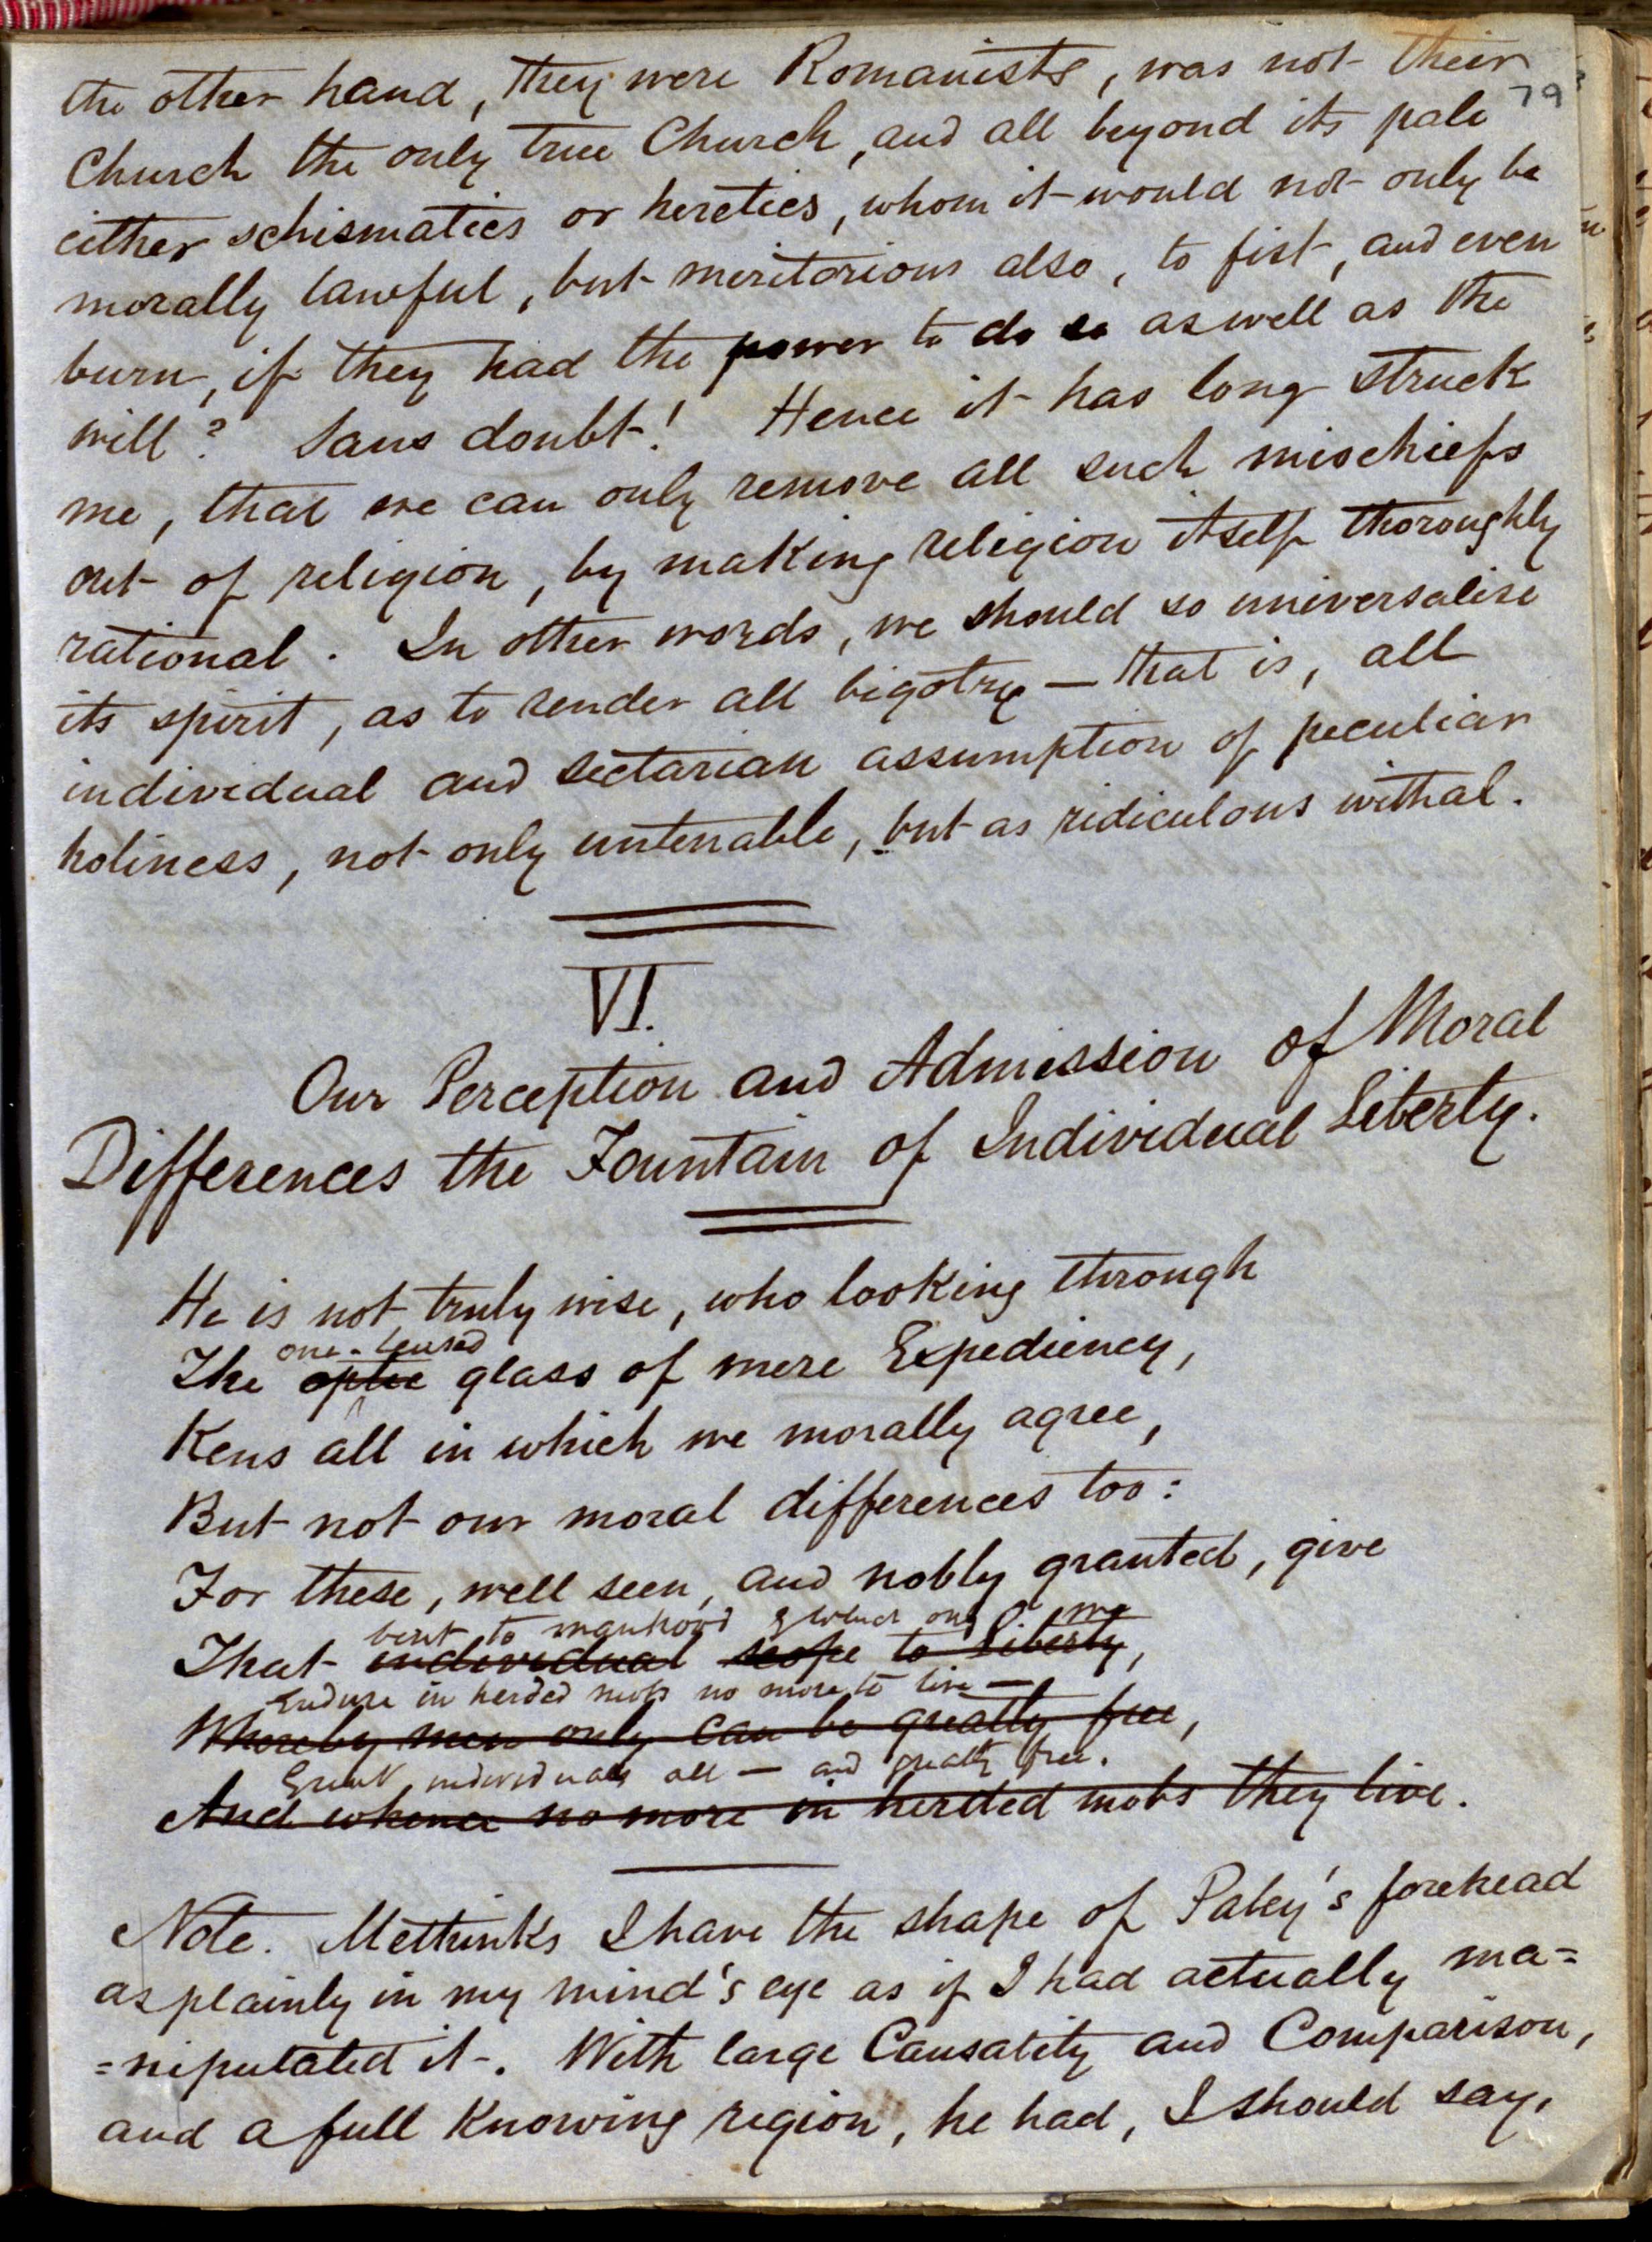 the other hand, they were Romanists, was not their
79
Church the only true Church, and all beyond its pale
either schismatics or heretics, whom it would not only be
morally lawful, but meritorious also, to fist, and even
burn, if they had the power to do so as well as the
will? Sans doubt! Hence it has long struck
me, that we can only remove all such mischiefs
out of religion, by making religion itself thoroughly
rational. In other words, we should so universalise
its spirit, as to render all bigotry — that is, all
individual and sectarian assumption of peculiar
holiness, not only untenable, but as ridiculous withal.
VI.
Our Perception and Admission of Moral
Differences the Fountain of Individual Liberty.
He is not truly wise, who looking through
one-lensed
The optic glass of mere Expediency,
Kens all in which we morally agree,
But not our moral differences too:
For these, well seen, and nobly granted, give
bent to manhood which once
That individual scope to Liberty,
Endure in herded mobs no more to live —
Whereby men only can be greatly free,
Great individuals all — and greatly free.
And whence no more in herded mobs they live.
Note. Methinks I have the shape of Paley's forehead
as plainly in my mind's eye as if I had actually ma=
=nipulated it. With large Causality and Comparison,
and a full Knowing region, he had, I should say,